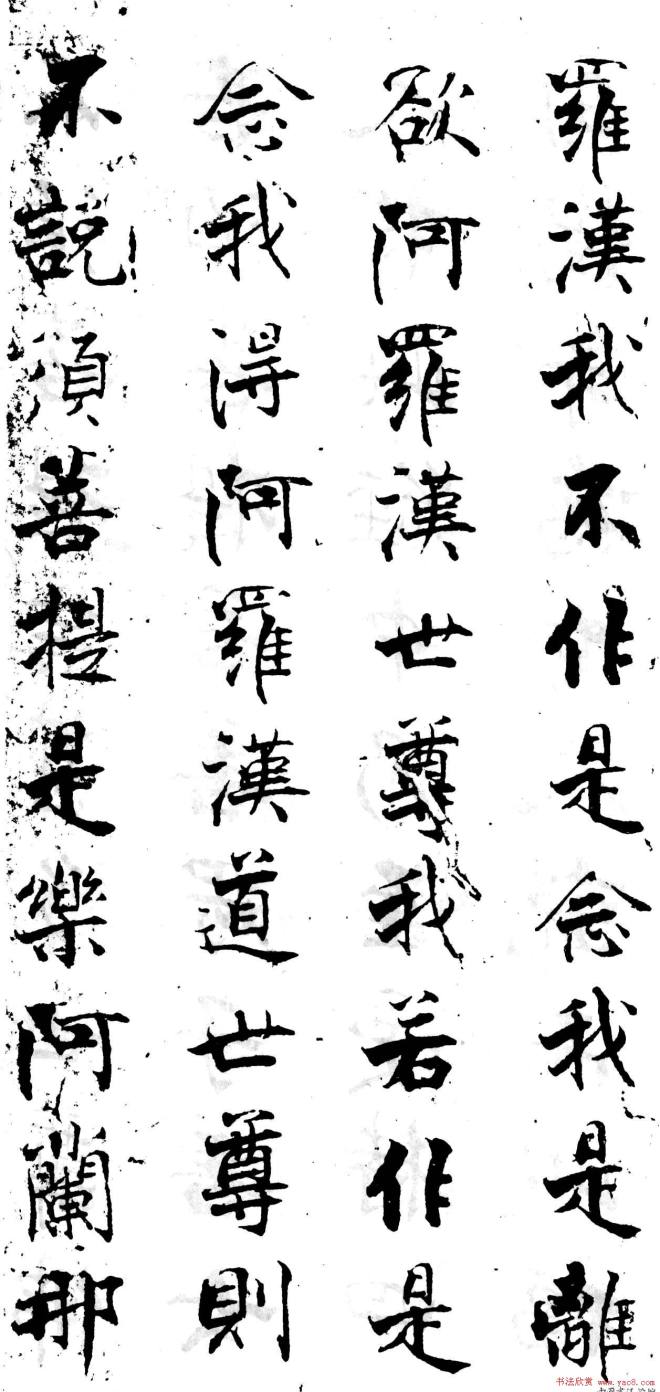 羅漢我不作是念我是離
欲阿羅漢世尊我若作是
念我得阿羅漢道世尊則
不說湏菩提是樂阿蘭那
书法欣赏 www.yac8.com